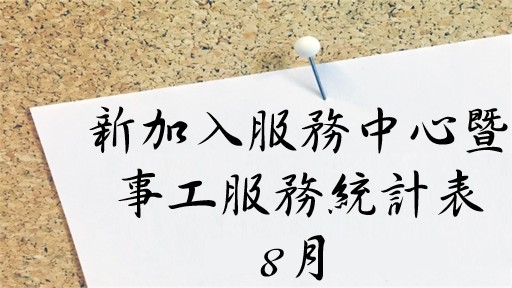 新加入服務中心暨
事工服務統計表
8月